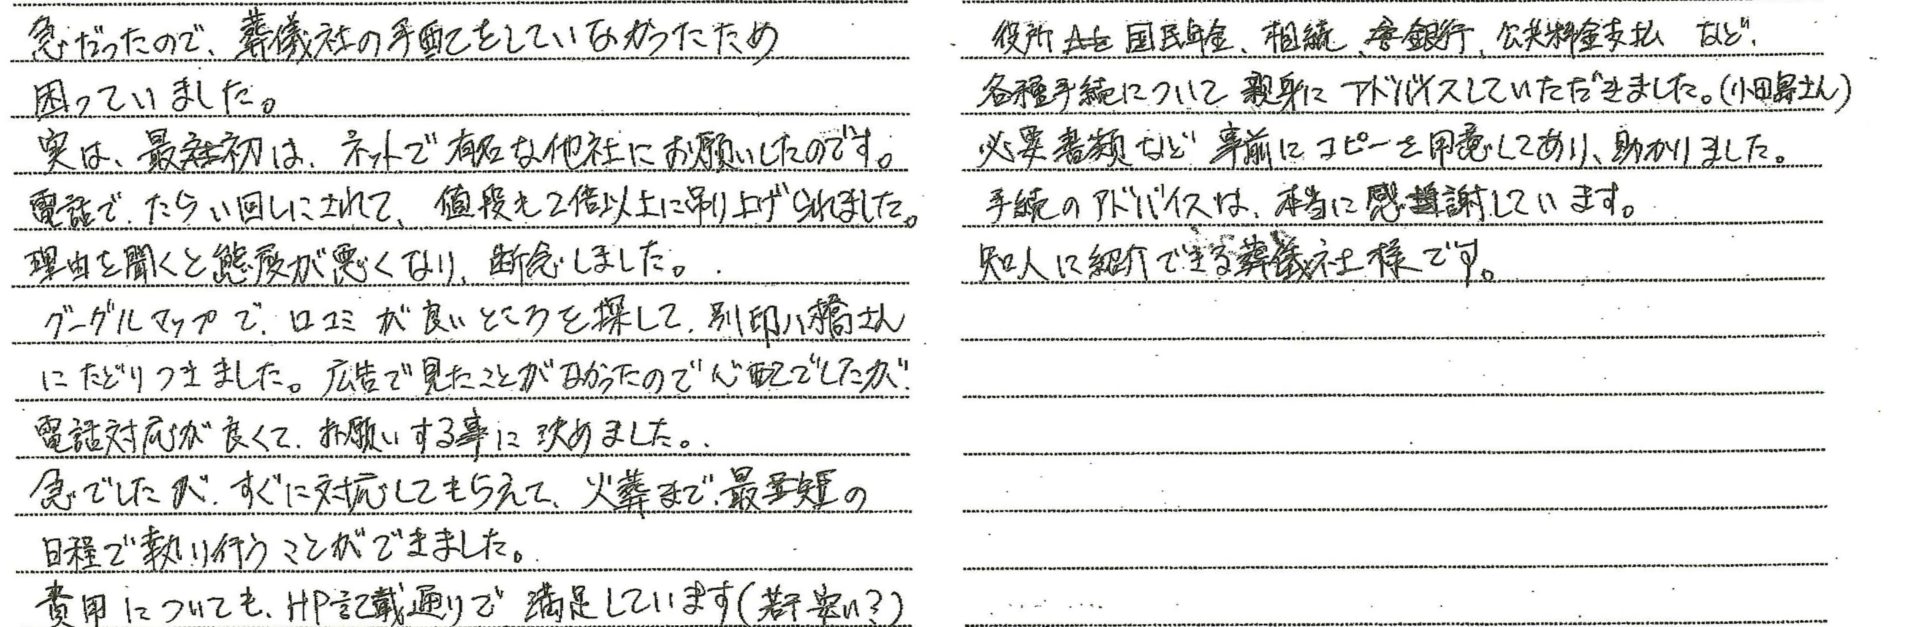 急だったので、葬儀社の手配をしていなかったため
困っていました。
実は、最初は、ネットで有名な他社にお願いしたのです。
電話で、たらい回しにされて、値段も2倍以上に吊り上げられました。
理由を聞くと態度が悪くなり、断念しました。
グーグルマップで、口コミが良いところを探して、別印八橋さん
にたどりつきました。広告で見たことがなかったので心配でしたが、
電話対応が良くて、お願いする事に決めました。
急でしたが、すぐに対応してもらえて、火葬まで、最短の
日程で執り行うことができました。
費用についても、HP記載通りで満足しています(若干安い?)
役所 国民年金、相続、銀行、公共料金支払 など、
各種手続について親身にアドバイスしていただきました。(小田島さん)
必要書類など事前にコピーを用意してあり、助かりました。
手続のアドバイスは、本当に感謝しています。
知人に紹介できる葬儀社様です。